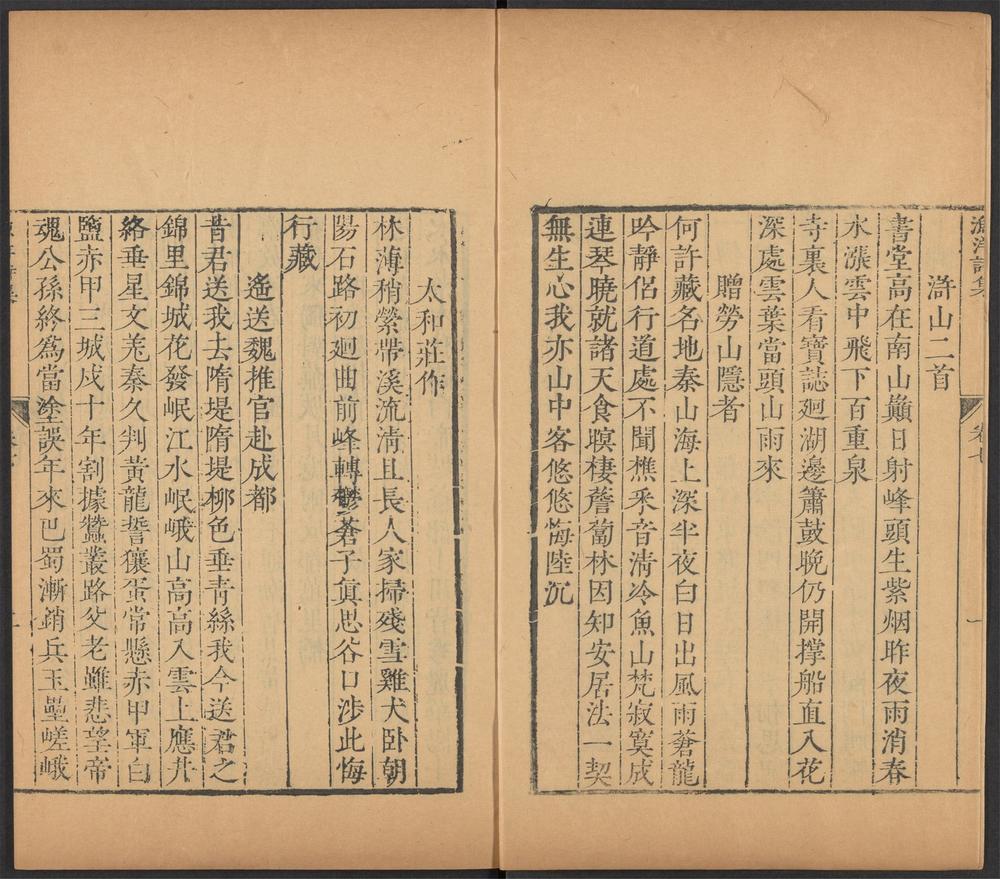 漁洋詩集
卷七
一
滸山二首
書堂高在南山巔日射峰頭生紫烟昨夜雨消春
水漲雲中飛下百重泉
寺裏人看寶誌廻湖邊簫鼓晚仍開撑船直入花
深處雲葉當頭山雨來
贈勞山隱者
何許藏名地秦山海上深半夜白日出風雨蒼龍
吟靜侶行道處不聞樵采音清冷魚山梵寂寞成
連琴曉就諸天食暝棲薝蔔林因知安居法一契
無生心我亦山中客悠悠悔陸沉
太和莊作
林薄稍縈帶溪流淸且長人家掃殘雪雞犬卧朝
陽石路初廻曲前峰轉鬱蒼子眞思谷口涉此悔
行藏
遙送魏推官赴成都
昔君送我去隋堤隋堤柳色垂靑絲我今送君之
錦里錦城花發岷江水岷峨山高高入雲上應井
絡垂星文羌秦久判黃龍誓獽蛋常懸赤甲軍白
鹽赤甲三城戍十年割據蠶叢路父老雖悲望帝
魂公孫終爲當塗誤年來巴蜀漸銷兵玉壘嵯峨